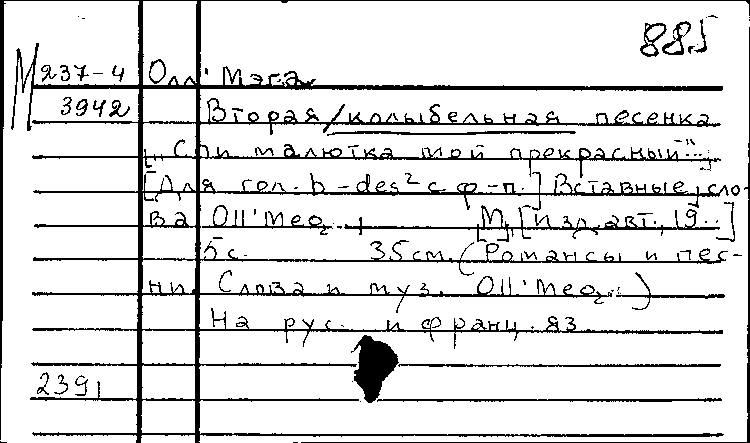 885
М 237-4 Олл' Мэга
3942 Вторая /колыбельная песенка
[„Спи малютка мой прекрасный..."]
[Для гол. b-des² с ф-п.] Вставные сло-
ва Oll' Mega. М, [изд. авт., 19..]
5 с. 35 см. (Романсы и пес-
ни. Слова и муз. Oll' Mega.)
На рус. и франц. яз
2391